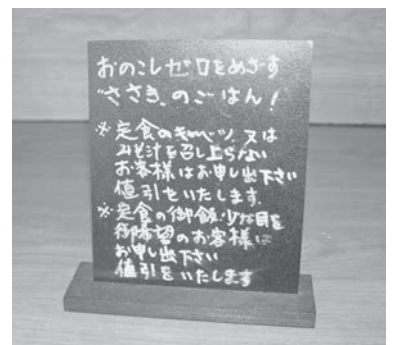 おのこしゼロをめざす
"ささき"のごはん!
※定食のキャベツ、又は
みそ汁を召し上らない
お客様はお申し出下さい
値引をいたします.
※定食の御飯.少な目を
御希望のお客様は
お申し出下さい
値引をいたします